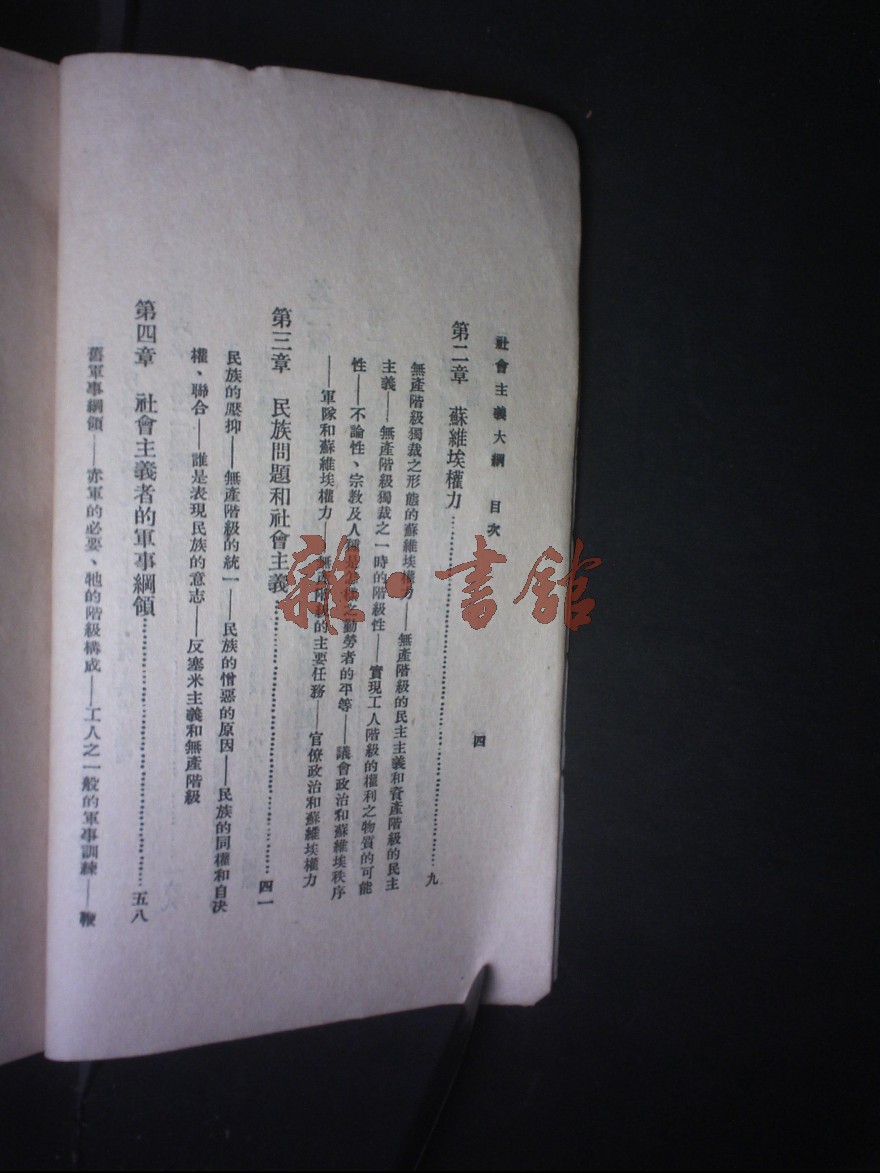 社會主義大綱 目次
四
第二章 蘇維埃權力……九
無產階級獨裁之形態的蘇維埃權力——無產階級的民主主義和資產階級的民主
主義——無產階級獨裁之一時的階級性——實現工人階級的權利之物質的可能
性——不論性、宗教及人種 勤勞者的平等——議會政治和蘇維埃秩序
——軍隊和蘇維埃權力——無產階級的主要任務——官僚政治和蘇維埃權力
第三章 民族問題和社會主義……四一
民族的壓抑——無產階級的統一——民族的憎惡的原因——民族的同權和自決
權、聯合——誰是表現民族的意志——反塞米主義和無產階級
第四章 社會主義者的軍事綱領……五八
舊軍事綱領——赤軍的必要、牠的階級構成——工人之一般的軍事訓練——鞭
雜·書館